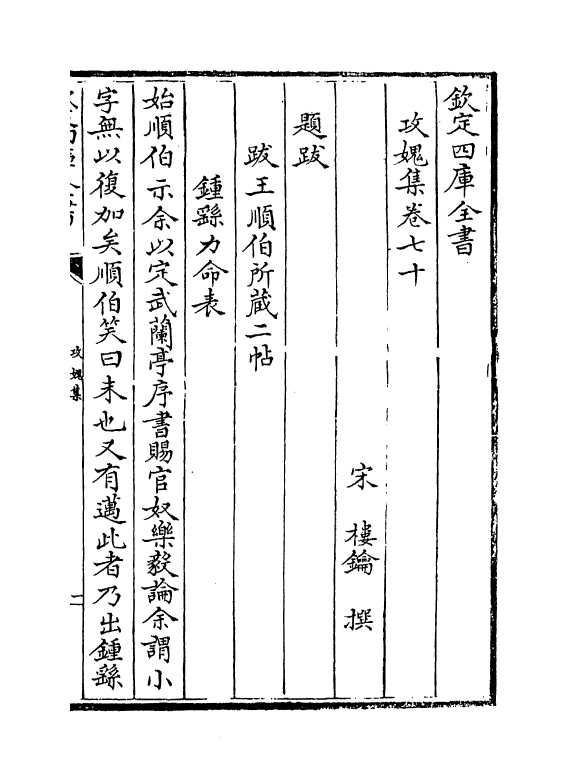 欽定四庫全書
攻媿集卷七十
宋 樓鑰 撰
題跋
跋王順伯所蔵二帖
鍾繇力命表
始順伯示余以定武蘭亭序書賜官奴樂毅論余謂小
字無以復加矣順伯笑曰未也又有邁此者乃出鍾繇
攻媿集